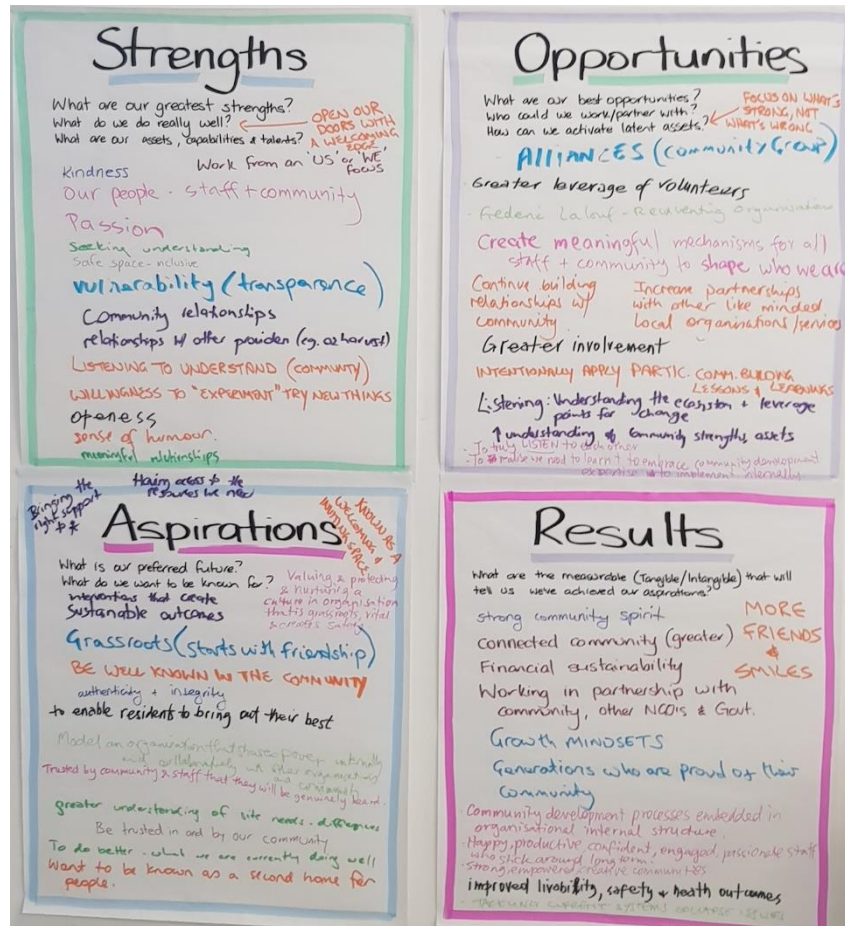 Strengths
What are our greatest strengths?
What do we do really well?
What are our assets, capabilities & talents?
OPEN OUR
DOORS WITH
A WELCOMING
EDGE,
Work from an 'US' or 'WE'
FOCUS
Kindness
Our people - staff + community
Passion
Seeking understanding
Safe space - inclusive
vulnerability (transparence)
Community relationships
relationships w/ other providers (eg. ozharvest)
LISTENING TO UNDERSTAND (COMMUNITY)
WILLINGNESS TO "EXPERIMENT" TRY NEW THINGS
openess
sense of humour.
meaningful relationships
Opportunities
What are our best opportunities?
Who could we work/partner with?
How can we activate latent assets?
FOCUS ON WHAT'S
STRONG, NOT
WHAT'S WRONG
ALLIANCES (Community Group)
Greater leverage of volunteers
- Frederic Lalouf - Reinventing Organisation
Create meaningful mechanisms for all
staff + community to shape who we are
Continue building
relationships w/
community
Increase partnerships
with other like minded
Local organisations/services
Greater involvement
INTENTIONALLY APPLY PARTIC. COMM. BUILDING
LESSONS & LEARNINGS
Listening: Understanding the ecosystem + leverage
points for change
↑ understanding of community strengths, assets
- To truly LISTEN to each other
- To realise we need to learn to embrace community development
expertise to implement internally
Bringing the
right support
Having access to the
resources we need
Aspirations
KNOWN AS A
WELCOMING &
INVITING SPACE
What is our preferred future?
What do we want to be known for?
interventions that create
Sustainable outcomes
Valuing & protecting
& nurturing a
culture in organisation
that is grassroots, vital
& creates safety
Grassroots (starts with friendship)
BE WELL KNOWN IN THE COMMUNITY
authenticity + integrity
to enable residents to bring out their best
Model an organisation that shares power internally
and collaboratively with other organisations
and community
Trusted by community & staff that they will be genuinely heard.
greater understanding of site needs - differences
Be trusted in and by our community
To do better - what we are currently doing well
Want to be known as a second home for
people.
Results
What are the measurable (Tangible/Intangible) that will
tell us we've achieved our aspirations?
MORE
FRIENDS
&
SMILES
strong community spirit
connected community (greater)
Financial sustainability
Working in partnership with
community, other NGO's & Govt.
Growth MINDSETS
Generations who are proud of their
community
- Community development processes embedded in
organisational internal structure.
- Happy, productive confident, engaged, passionate staff
who stick around long term.
- Strong, empowered, creative communities
improved livability, safety & health outcomes
- TACKLING CURRENT SYSTEMS COLLAPSE ISSUES